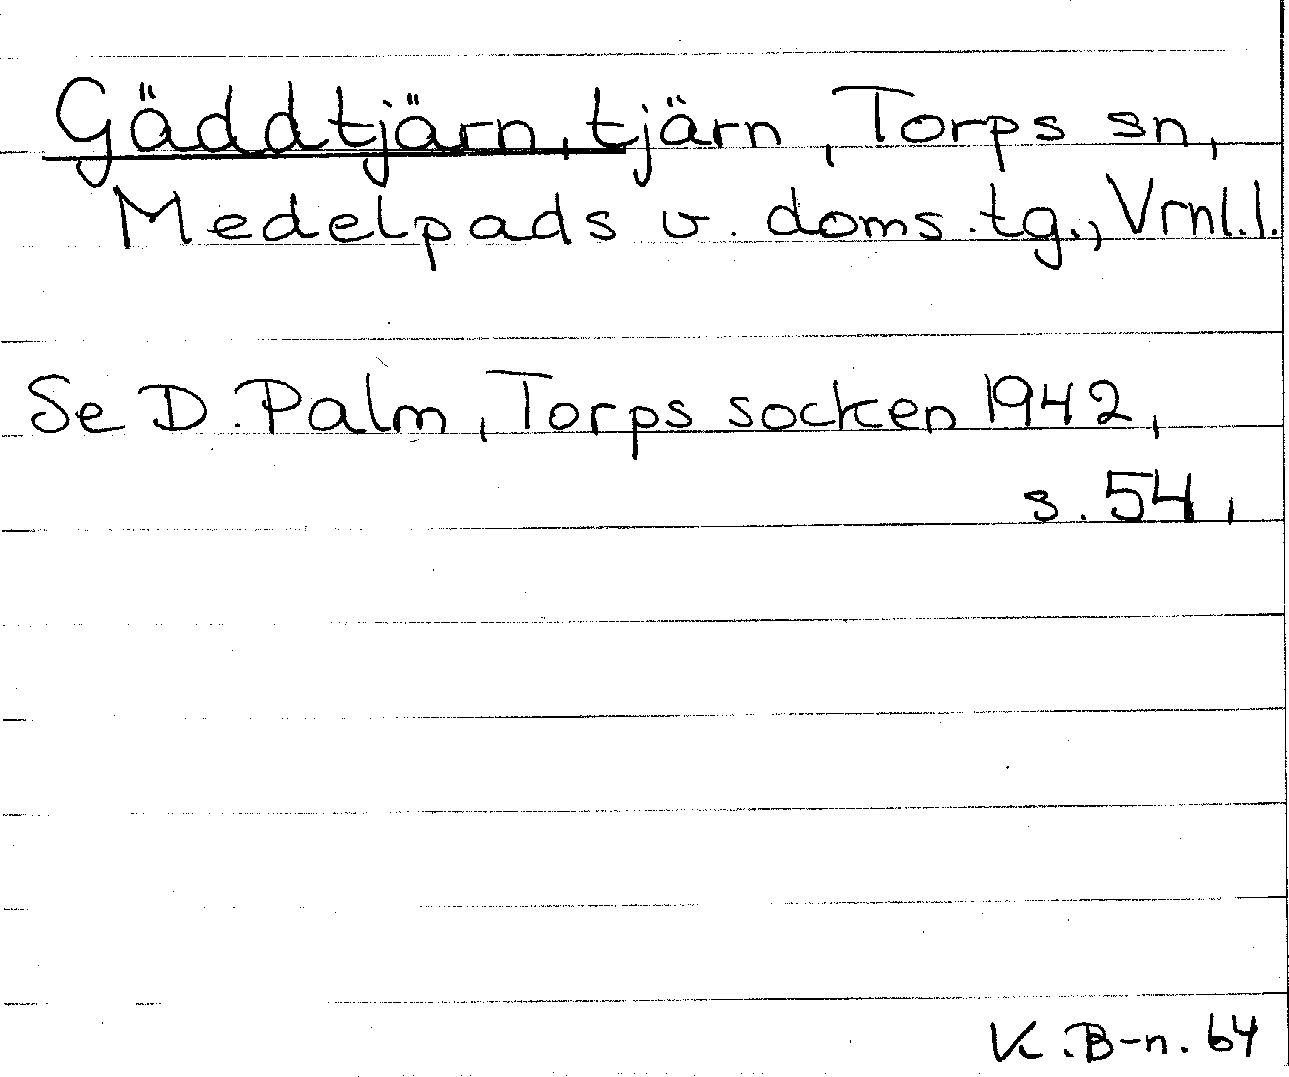 Gäddtjärn, tjärn, Torps sn,
Medelpads v. doms.tg., Vrnl.l.
Se D. Palm, Torps socken 1942,
s. 54,
K.B-n. 64